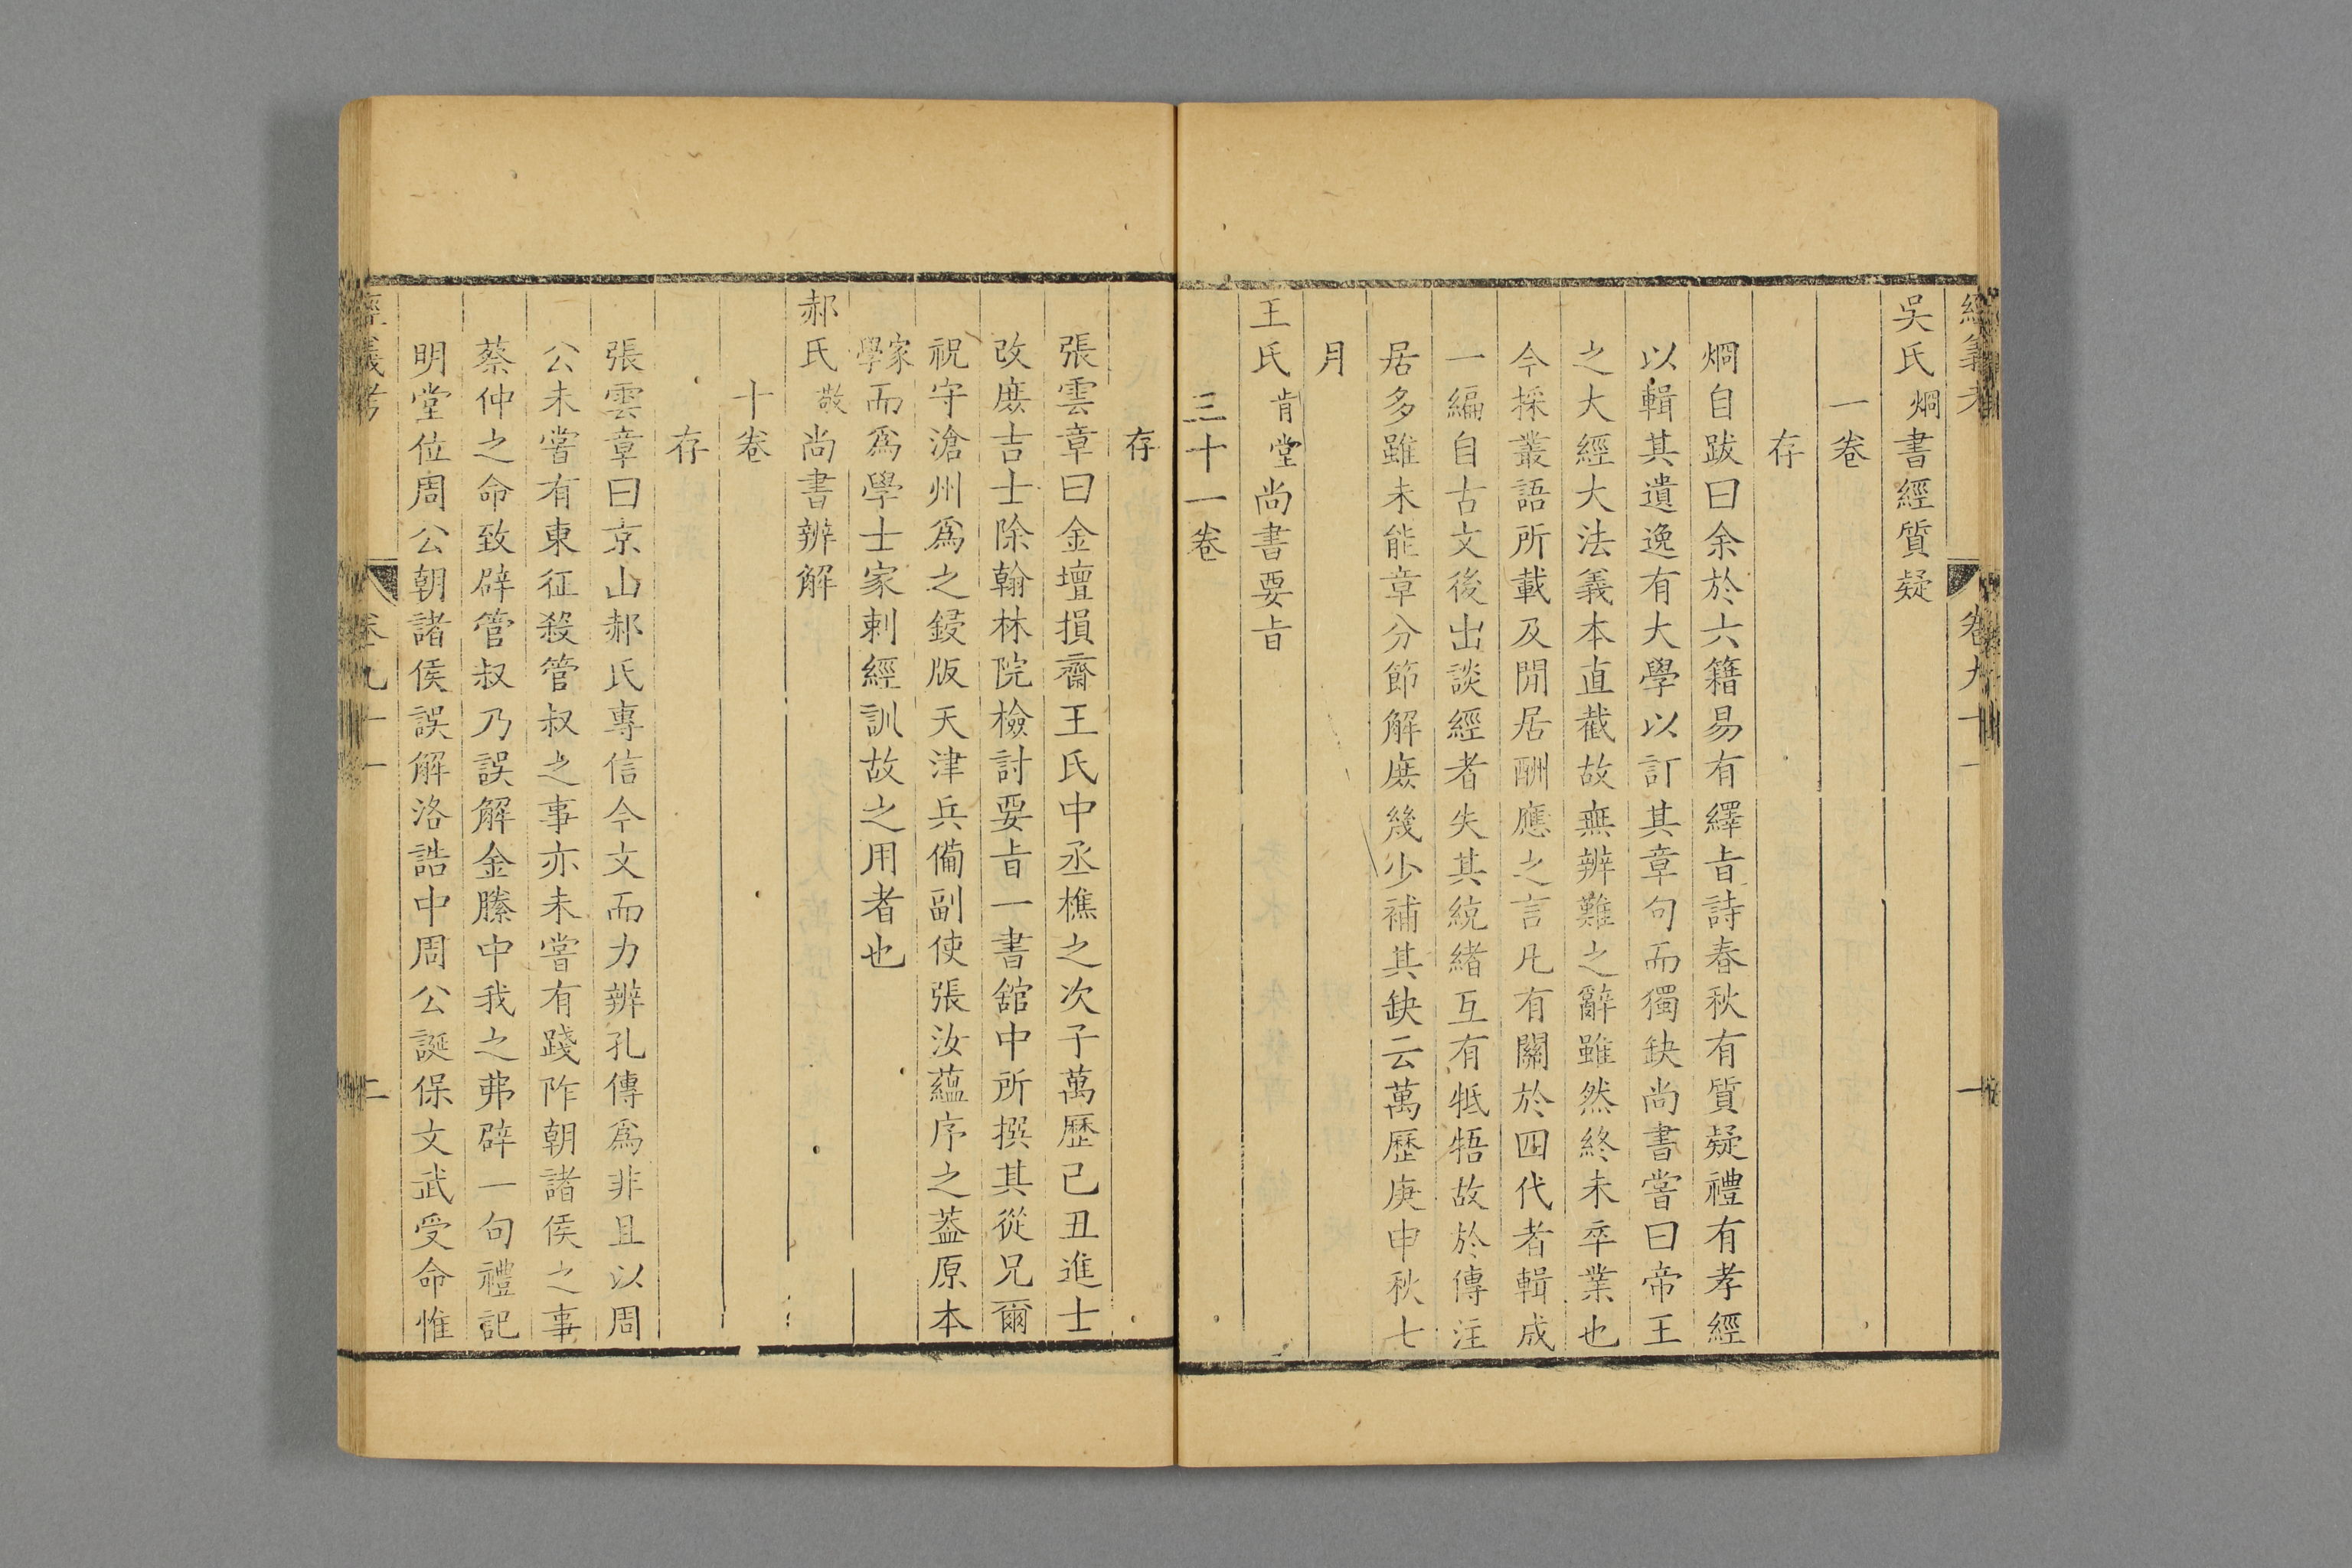 經義考 卷九十一 一
吳氏炯書經質疑
一卷
存
炯自跋曰余於六籍易有繹旨詩春秋有質疑禮有孝經
以輯其遺逸有大學以訂其章句而獨缺尚書嘗曰帝王
之大經大法義本直截故無辨難之辭雖然終未卒業也
今採叢語所載及閒居酬應之言凡有關於四代者輯成
一編自古文後出談經者失其統緒互有牴牾故於傳注
居多雖未能章分節解庶幾少補其缺云萬歷庚申秋七
月
王氏肯堂尚書要旨
三十一卷
存
張雲章曰金壇損齋王氏中丞樵之次子萬歷己丑進士
改庶吉士除翰林院檢討要旨一書舘中所撰其從兄爾
祝守滄州爲之鋟版天津兵備副使張汝蘊序之葢原本
家學而爲學士家剌經訓故之用者也
郝氏敬尚書辨解
十卷
存
張雲章曰京山郝氏專信今文而力辨孔傳爲非且以周
公未嘗有東征殺管叔之事亦未嘗有踐阼朝諸侯之事
蔡仲之命致辟管叔乃誤解金縢中我之弗辟一句禮記
明堂位周公朝諸侯誤解洛誥中周公誕保文武受命惟
經義考 卷九十一 二